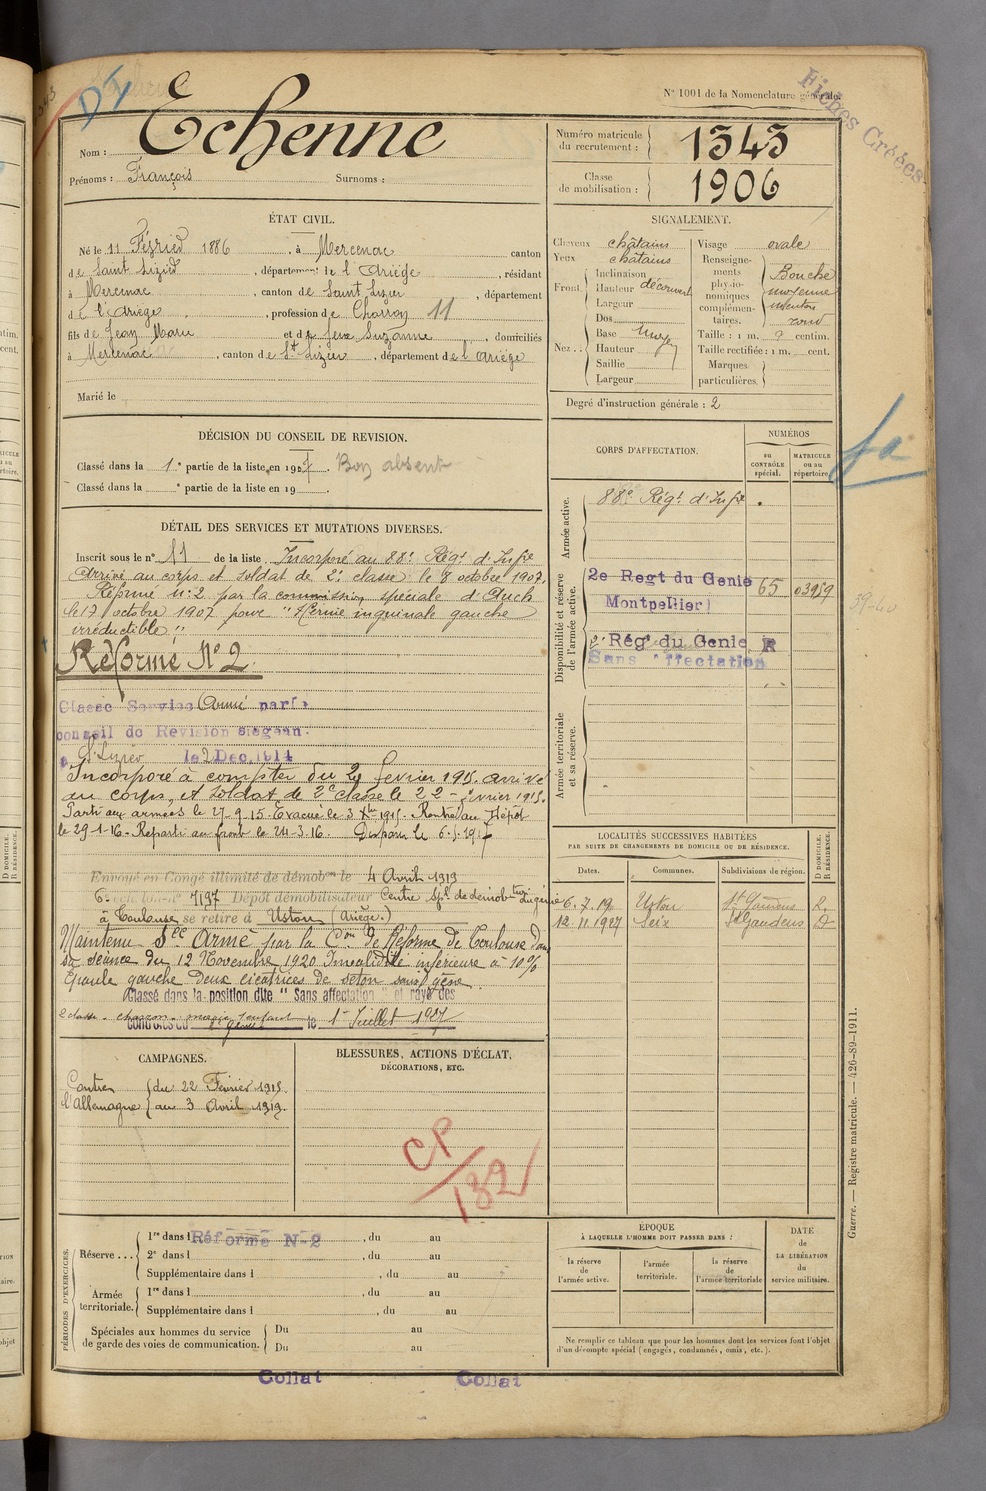 N° 1001 de la Nomenclature générale.
Fiches Créées
Nom : Echenne
Prénoms : François Surnoms :
Numéro matricule du recrutement : 1343
Classe de mobilisation : 1906
ÉTAT CIVIL.
Né le 11 Février 1886, à Mercenac canton
de Saint Lizier, département de l'Ariège, résidant
à Mercenac, canton de Saint Lizier, département
de l'Ariège, profession de Charron 11
fils de Jean Marie et de feue Suzanne, domiciliés
à Mercenac, canton de St Lizier, département de l'Ariège
Marié le
SIGNALEMENT.
Cheveux châtains
Yeux châtains
Front
Inclinaison
Hauteur découvert
Largeur
Nez
Dos
Base moyen
Hauteur
Saillie
Largeur
Visage ovale
Renseignements physionomiques complémentaires.
Bouche
moyenne
menton
rond
Taille : 1 m. centim.
Taille rectifiée : 1 m. cent.
Marques particulières.
Degré d'instruction générale : 2
DÉCISION DU CONSEIL DE REVISION.
Classé dans la 1e partie de la liste en 1907. Bon absent
Classé dans la e partie de la liste en 19
DÉTAIL DES SERVICES ET MUTATIONS DIVERSES.
Inscrit sous le n° 11 de la liste Incorporé au 88e Régt d'Infie
Arrivé au corps et soldat de 2e classe le 8 octobre 1907.
Réformé n° 2 par la commission spéciale d'Auch
le 17 octobre 1907 pour "Hernie inguinale gauche
irréductible"
Réformé N° 2.
Classé Service Armé par le
conseil de Revision siégeant
à St Lizier le 2 Dec. 1914
Incorporé à compter du février 1915. arrivé
au corps et soldat de 2e classe le 22 février 1915.
Parti aux armées le 27-9-15. Evacué le 3 Xbre 1915. Rentré au Dépôt
le 29-1-16. Reparti au front le 24-3-16.
Envoyé en Congé illimité de démobon le 4 Avril 1919
6e échelon n° 7197 Dépôt démobilisateur Centre spl de démobton du génie
à Toulouse se retire à Ustou (Ariège.)
Maintenu Sce Armé par la Con de Réforme de Toulouse dans
sa séance du 12 Novembre 1920 Invalidité inférieure à 10%
Epaule gauche deux cicatrices de séton sans gêne.
Classé dans la position dite "Sans affectation" et rayé des
contrôles du 2e Génie le 1er Juillet 1927
CORPS D'AFFECTATION.
NUMÉROS
au CONTRÔLE spécial.
MATRICULE ou au répertoire.
Armée active.
88e Régt d'Infie
Disponibilité et réserve de l'armée active.
2e Regt du Genie 65 03959
Montpellier
2e Régt du Genie R
Sans affectation
Armée territoriale et sa réserve.
LOCALITÉS SUCCESSIVES HABITÉES
PAR SUITE DE CHANGEMENTS DE DOMICILE OU DE RÉSIDENCE.
Dates. Communes. Subdivisions de région. D DOMICILE. R RÉSIDENCE.
6.7.19 Ustou St Gaudens R.
12.11.1927 Seix St Gaudens D
CAMPAGNES.
Contre l'Allemagne
du 22 Février 1915.
au 3 Avril 1919.
BLESSURES, ACTIONS D'ÉCLAT,
DÉCORATIONS, ETC.
CP/132
PÉRIODES D'EXERCICES.
Réserve
1re dans l Réformé N-2, du au
2e dans l , du au
Supplémentaire dans l , du au
Armée territoriale.
1re dans l , du au
Supplémentaire dans l , du au
Spéciales aux hommes du service de garde des voies de communication.
Du au
Du au
ÉPOQUE
À LAQUELLE L'HOMME DOIT PASSER DANS :
la réserve de l'armée active.
l'armée territoriale.
la réserve de l'armée territoriale
DATE de LA LIBÉRATION du service militaire.
Ne remplir ce tableau que pour les hommes dont les services font l'objet
d'un décompte spécial (engagés, condamnés, omis, etc.).
Guerre. — Registre matricule. — 426-89-1911.
Collat Collat